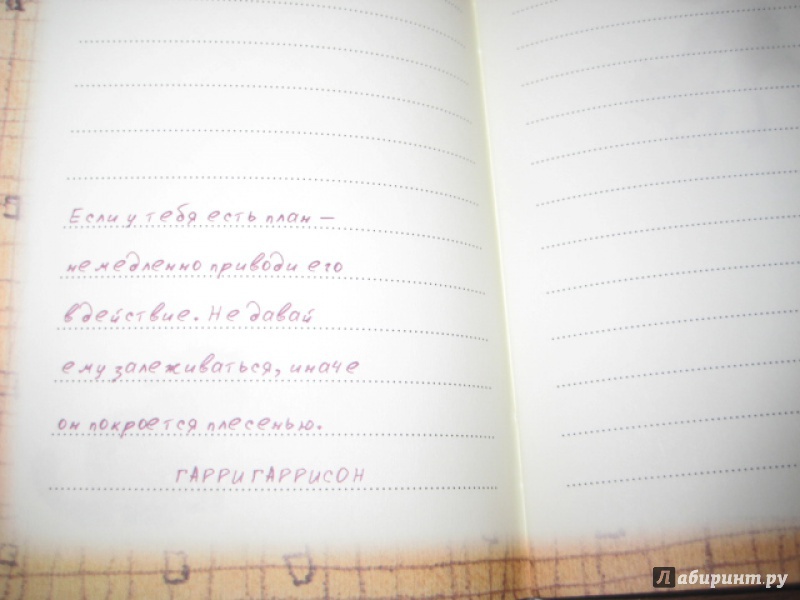 Если у тебя есть план –
немедленно приводи его
в действие. Не давай
ему залеживаться, иначе
он покроется плесенью.
ГАРРИ ГАРРИСОН
Лабиринт.ру